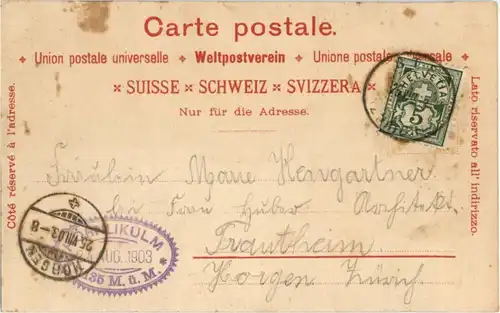 Carte postale.
Union postale universelle ✦ Weltpostverein ✦ Unione postale
SUISSE × SCHWEIZ × SVIZZERA
Nur für die Adresse.
Côté réservé à l'adresse.
Lato riservato all' indirizzo.
HELVETIA
5
Fräulein Marie Hengartner
bei Frau Huber Architekt.
Trautheim
Horgen Zürich
HORGEN
24.VIII.03.-8
AUG. 1903
M. ü. M.